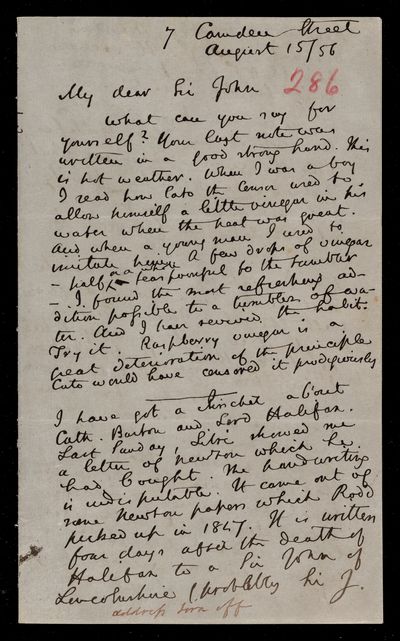 7 Camden Street
August 15/56
286
My dear Sir John
What can you say for
yourself? Your last note was
written in a good strong hand. This
is hot weather. When I was a boy
I read how Cato the Censor used to
allow himself a little vinegar in his
water when the heat was great.
And when a young man I used to
imitate him. A few drops of vinegar
– half a teaspoonful to the tumbler
– I found the most refreshing ad-
dition possible to a tumbler of wa-
ter. And I have revived the habit.
Try it. Raspberry vinegar is a
great deterioration of the principle
Cato would have censored it prodigiously
I have got a about
Cath. Barton and Lord Halifax.
Last Sunday, Libri showed me
a letter of Newton which he
had bought. The handwriting
is indisputable. It came out of
some Newton papers which Rodd
picked up in 1847. It is written
four days after the death of
Halifax to a Sir John of
Lincolnshire (probably Sir J.
address torn off